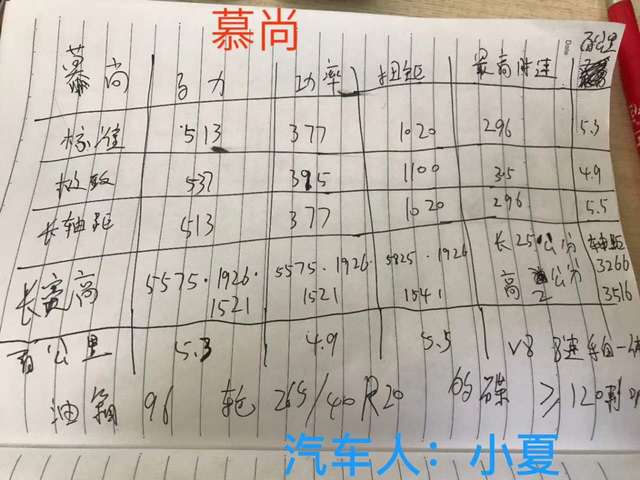 慕尚
Date
百公里
慕尚 马力 功率 扭距 最高时速
标准 513 377 1020 296 5.3
极致 537 395 1100 305 4.9
长轴距 513 377 1020 296 5.5
长宽高 5575·1926· 5575·1926· 5825·1926 长25公分 轴距
1521 1521 1541 高2公分 3266
3516
百公里 5.3 4.9 5.5 V8 8速手自一体
油箱 96 轮 265/40R20 的碟 ≥120刹
汽车人：小夏